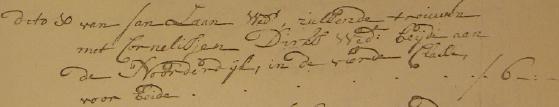 dito 30 van Jan Laan Wed:r, zullende trouwen
met Cornelisjen Dirks Wed: beijde aan
de Noorderdijk, in de vierde Classe,
voor beide . . . . . . . . . f 6 —:—